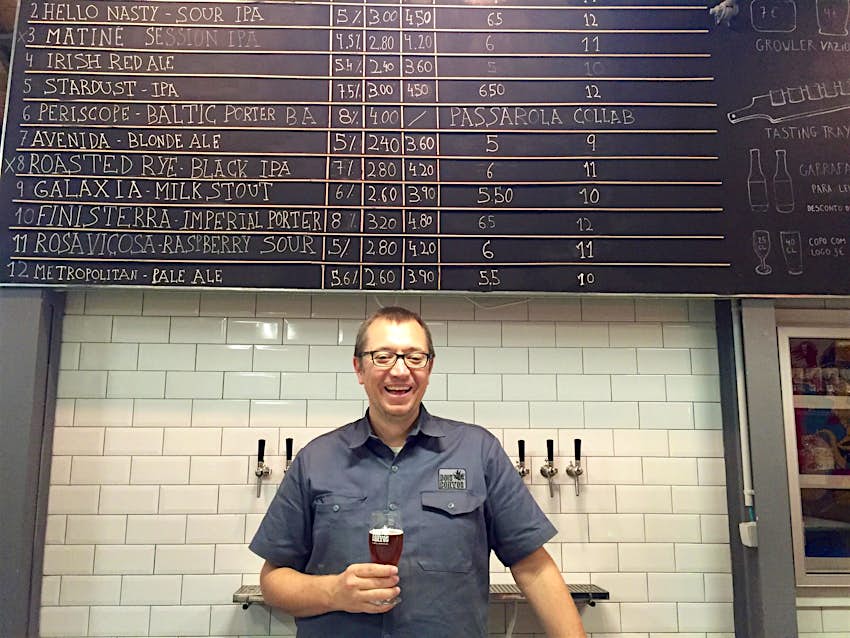 2 HELLO NASTY - SOUR IPA 5% 3.00 4.50 6.5 12
x3 MATINÉ SESSION IPA 4.5% 2.80 4.20 6 11
4 IRISH RED ALE 5.4% 2.40 3.60 5 10
5 STARDUST - IPA 7.5% 3.00 4.50 6.50 12
6 PERISCOPE - BALTIC PORTER B.A 8% 4.00 / PASSAROLA COLLAB
7 AVENIDA - BLONDE ALE 5% 2.40 3.60 5 9
x8 ROASTED RYE - BLACK IPA 7% 2.80 4.20 6 11
9 GALAXIA - MILK STOUT 6% 2.60 3.90 5.50 10
10 FINISTERRA - IMPERIAL PORTER 8% 3.20 4.80 6.5 12
11 ROSA VIÇOSA - RASPBERRY SOUR 5% 2.80 4.20 6 11
12 METROPOLITAN - PALE ALE 5.6% 2.60 3.90 5.5 10
7€ 4€
GROWLER VAZIO
TASTING TRAY
GARRAFA
PARA LE
DESCONTO D
25 CL 40 CL
COPO COM
LOGO 3€
DOIS
CORVOS